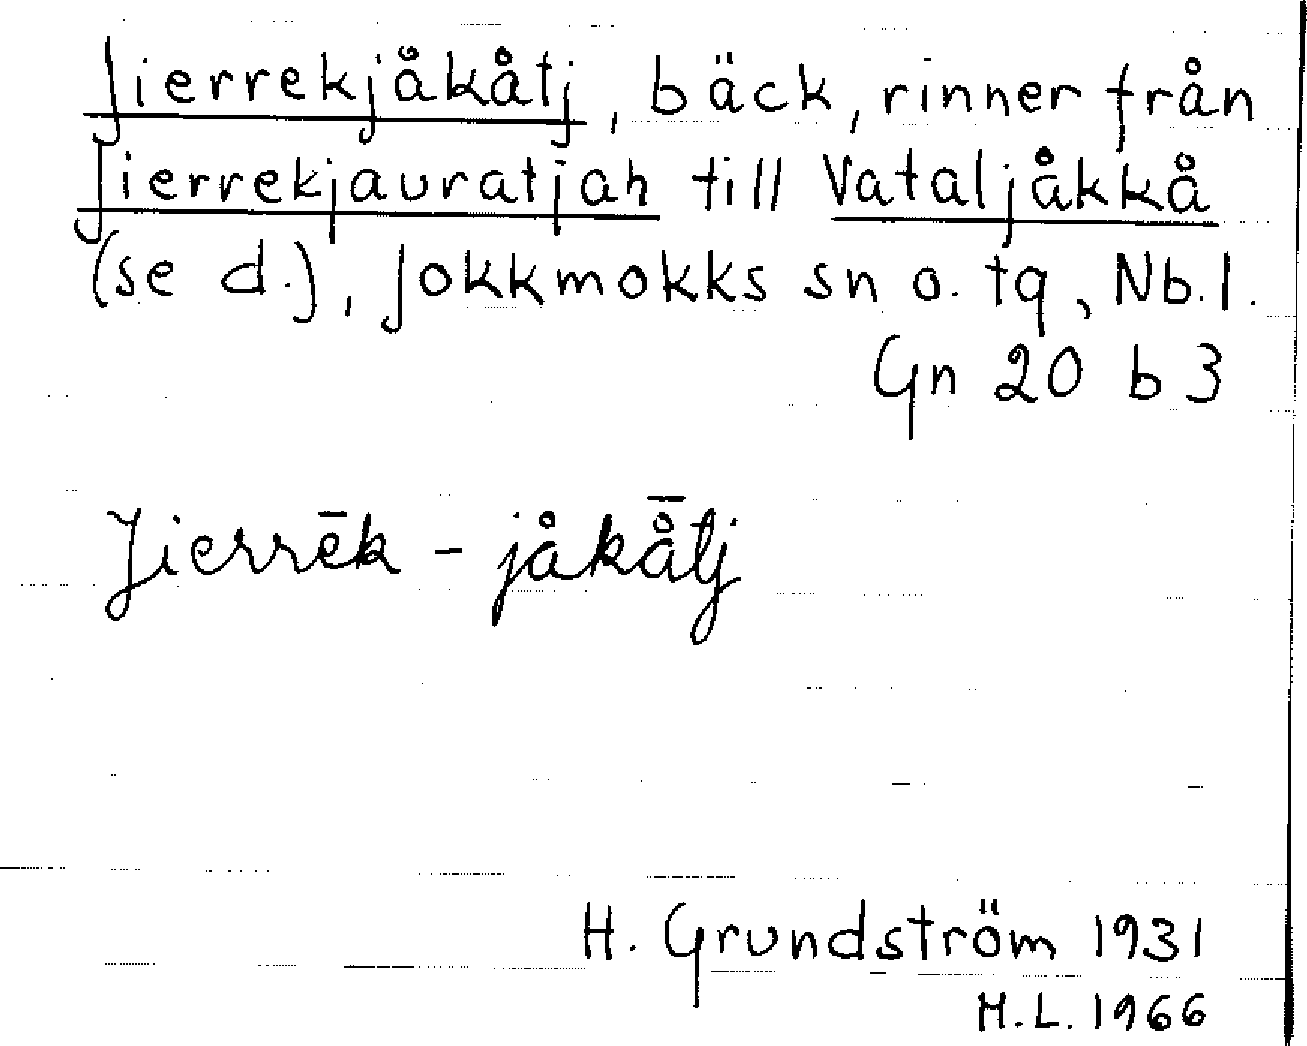 Jierrekjåkåtj, bäck, rinner från
Jierrekjauratjah till Vataljåkkå
(se d.), Jokkmokks sn o. tg, Nb. l.
Gn 20 b 3
Jierrēk - jåkå̄tj
H. Grundström 1931
H.L. 1966